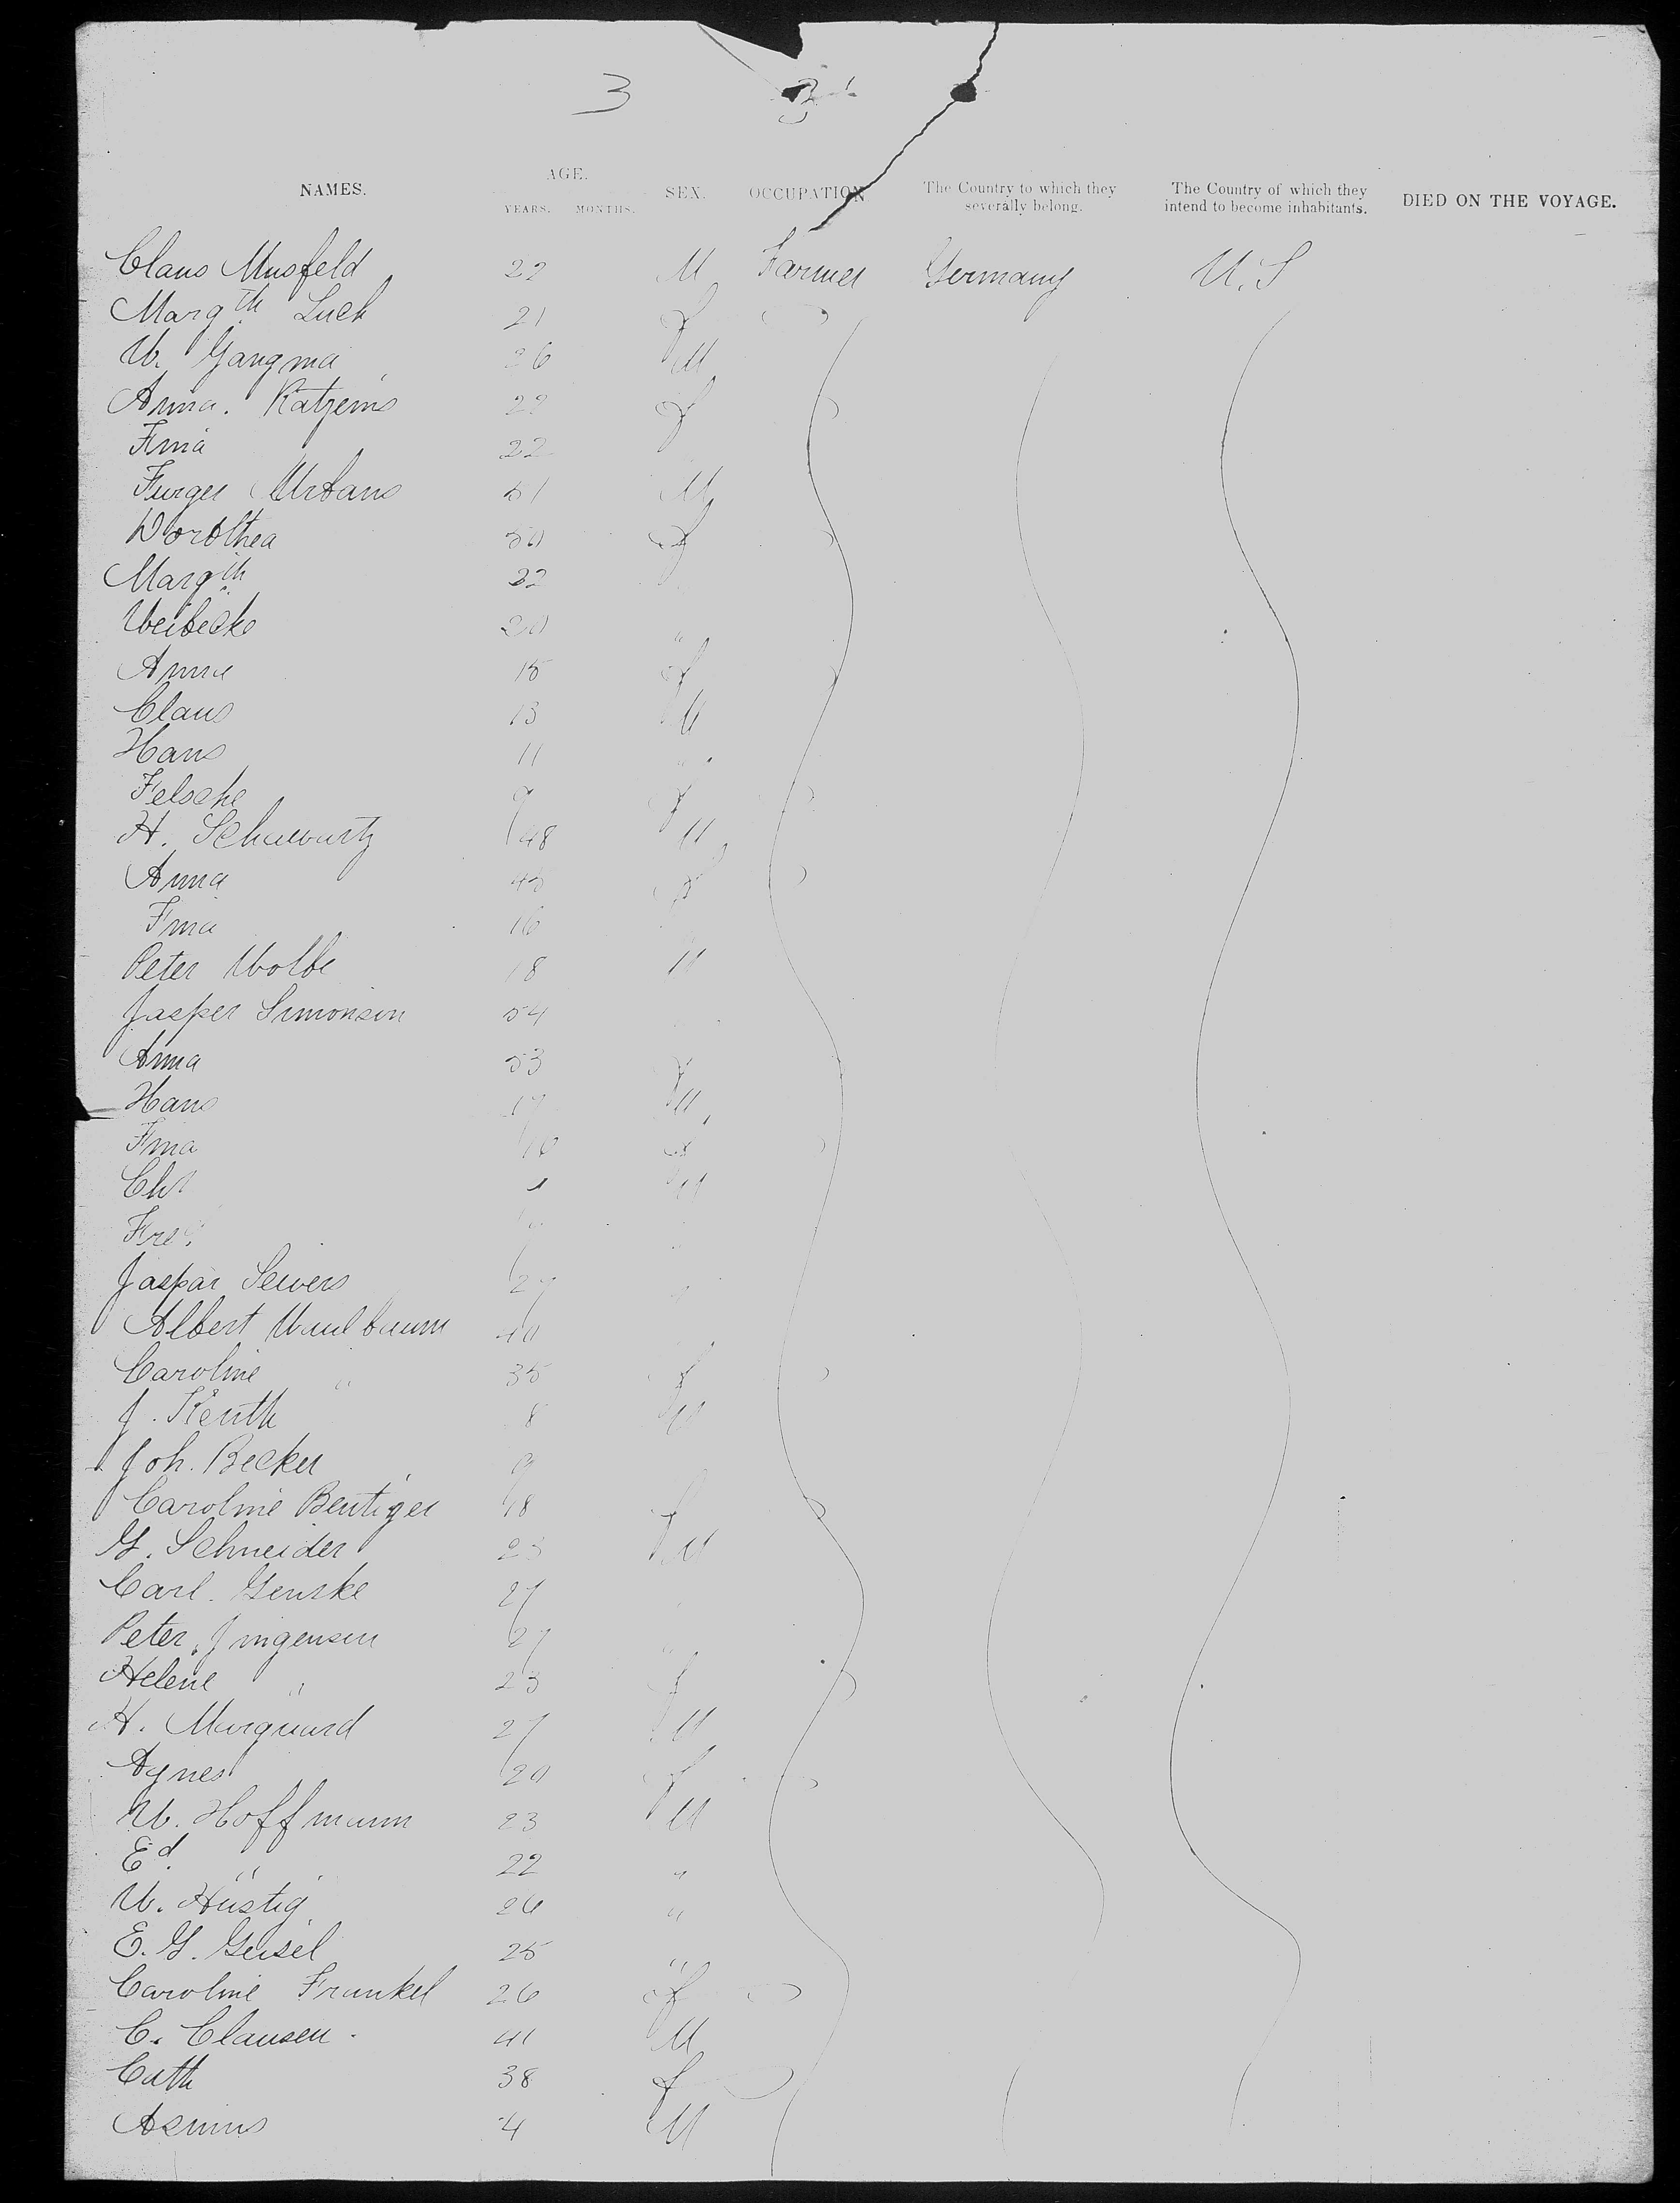 3 3
NAMES. AGE. YEARS. MONTHS. SEX. OCCUPATION The Country to which they severally belong. The Country of which they intend to become inhabitants. DIED ON THE VOYAGE.
Claus Musfeld 22 M Farmer Germany U.S
Marg th Luck 21 f
W. Gangma 26 M
Anna. Katzems 22 f
Fma 22
Furger Urbans 51 M
Dorothea 50 f
Marg th 22
Weibecke 20 "
Anna 15 f
Claus 13 M
Hans 11 "
Felsche 9 f
H. Schwartz 48 M
Anna 45 f
Fma 16
Peter Wolbe 18 M
Jasper Simonsen 54
Anna 53 f
Hans 17 M
Fma 10 f
Chr M
Fred.
Jaspar Sewers 27 "
Albert Waulbaum 40
Caroline " 35 f
J. Keuth 8 M
Joh. Becker 9
Caroline Bentiger 18 f
G. Schneider 23 M
Carl. Genske 27
Peter Jingensen 27 "
Helene " 23 f
H. Marquard 27 M
Agnes 20 f
W. Hoffmann 23 M
Ed. " 22 "
W. Hüstig 26 "
E. G. Geisel 25 "
Caroline Frankel 26 f
C. Clausen. 41 M
Cath 38 f
Asmus 4 M